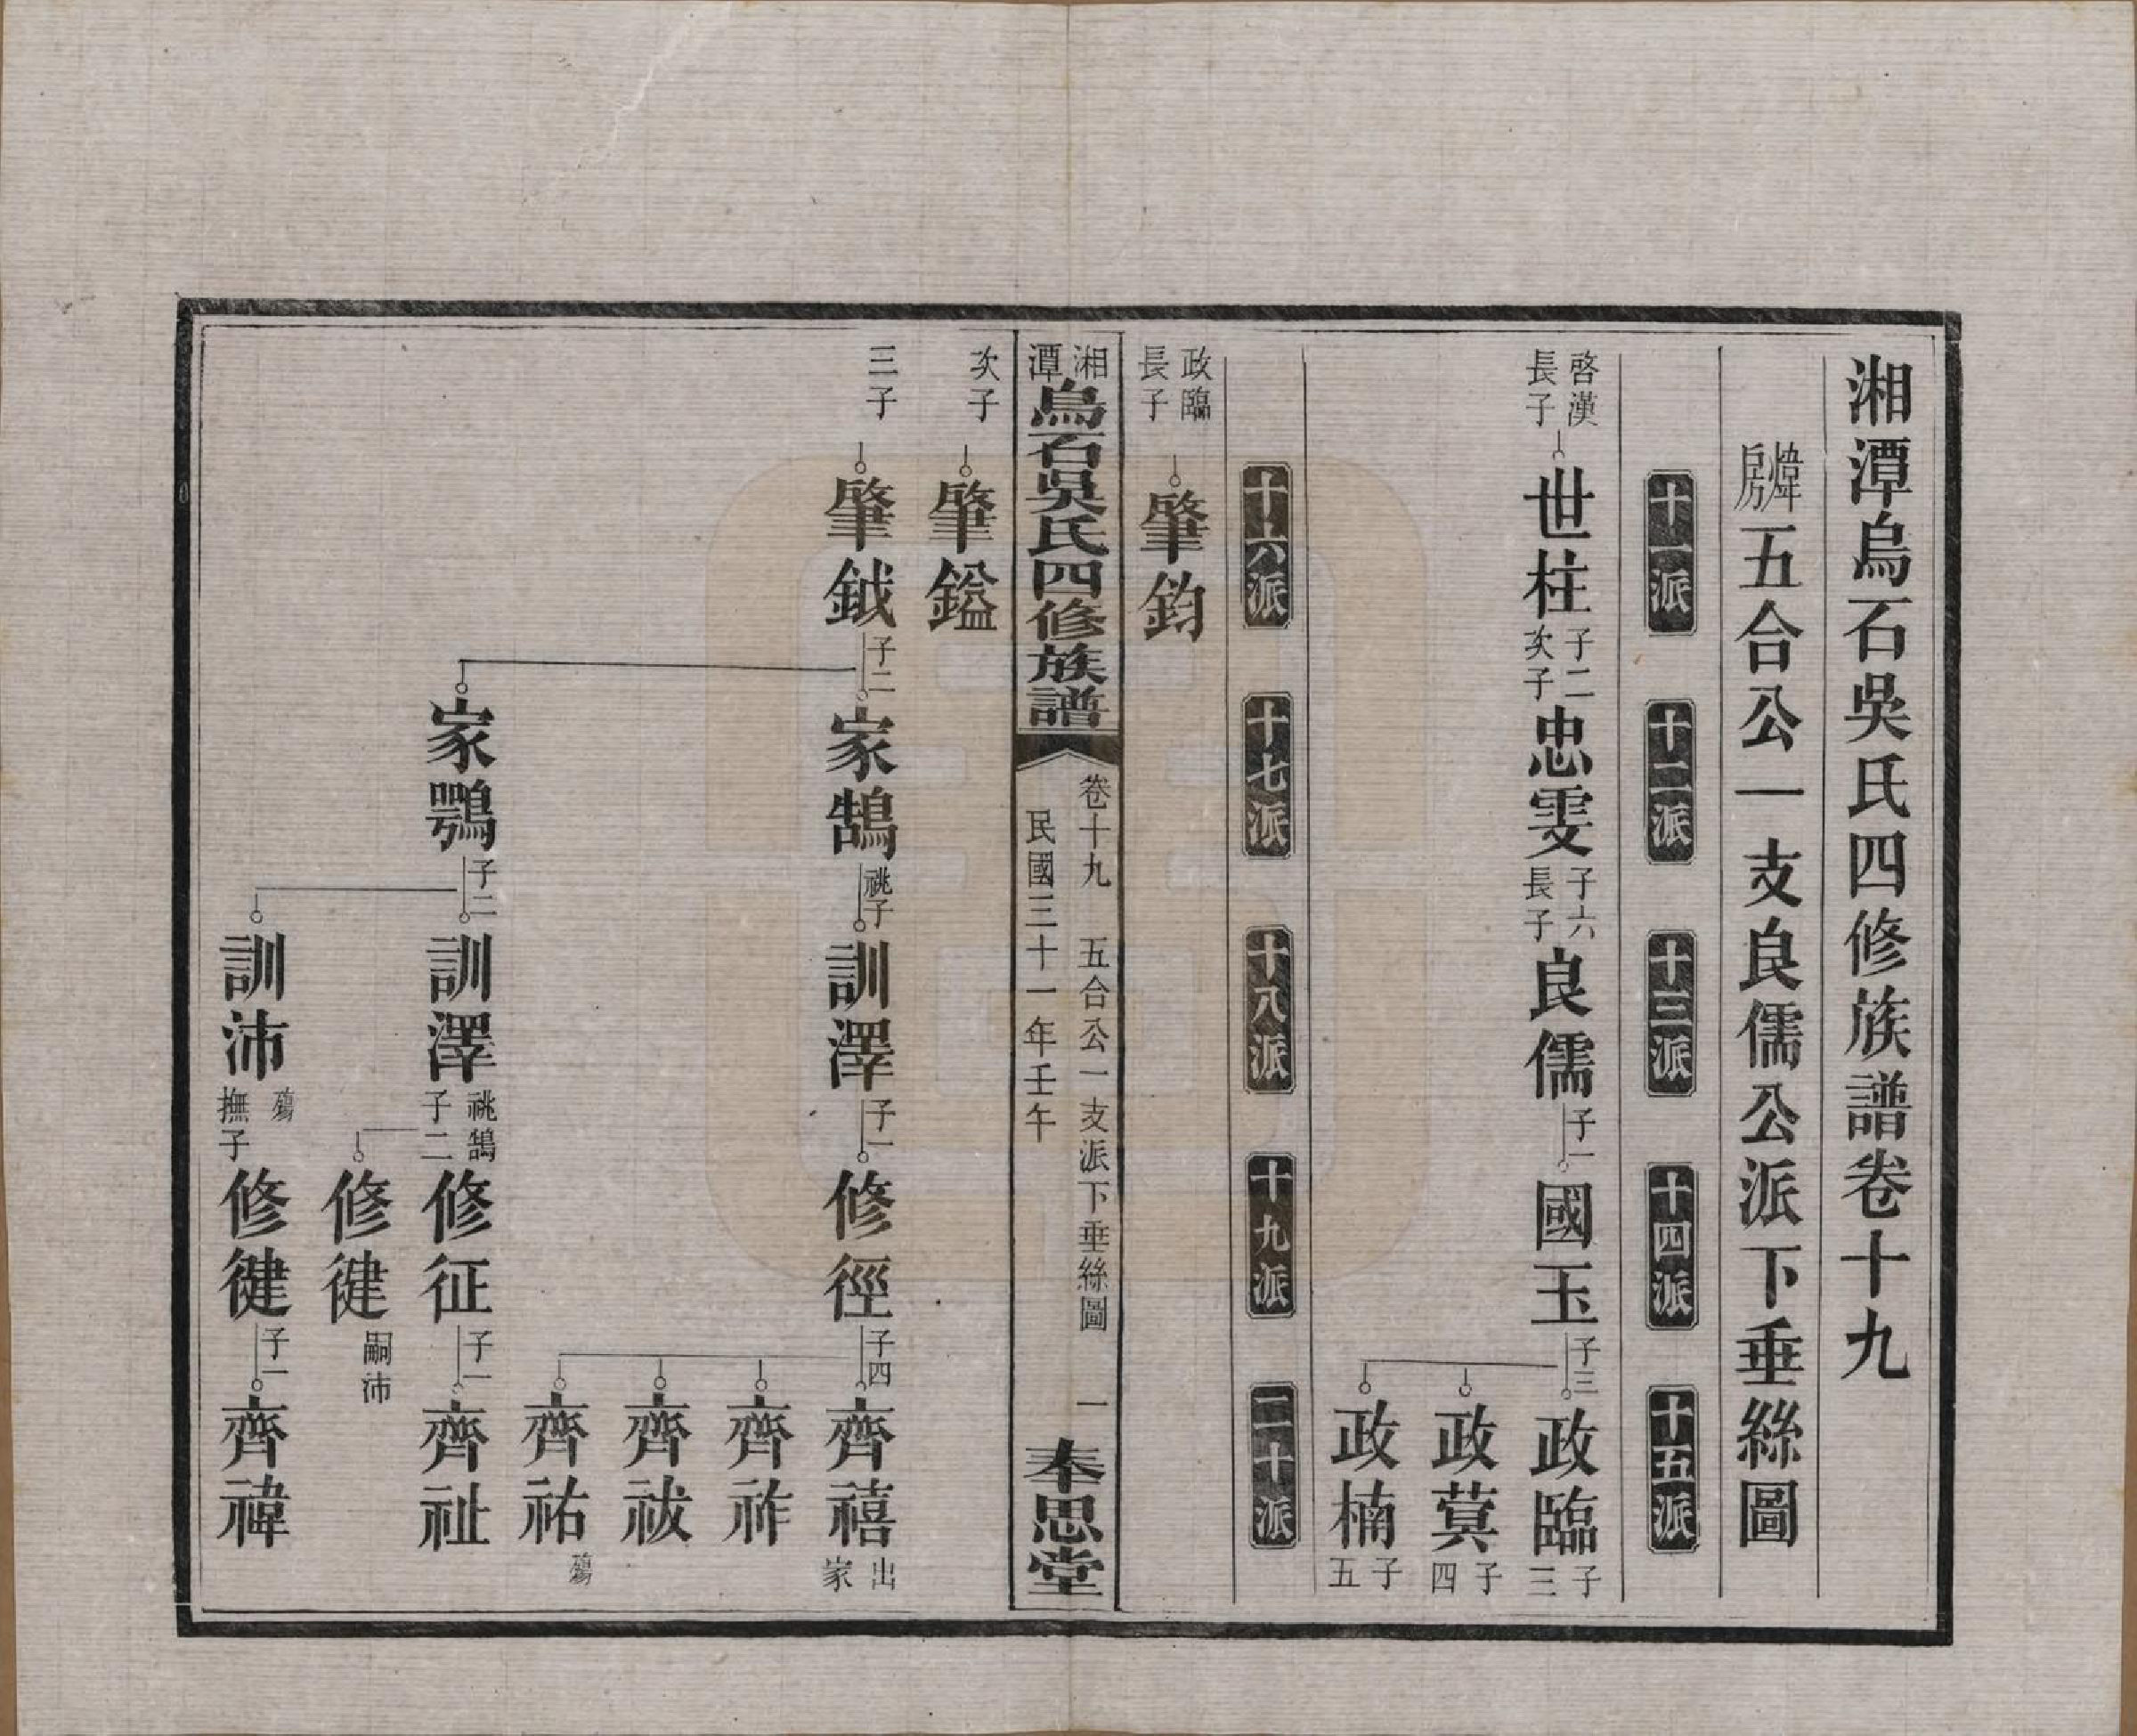 湘潭烏石吳氏四修族譜卷十九
煒房五合公一支良儒公派下垂絲圖
十一派 十二派 十三派 十四派 十五派
啓漢長子 世柱 子二次子 忠雯 子六長子 良儒 子一 國玉 子三 政臨 子三
政蓂 子四
政楠 子五
十六派 十七派 十八派 十九派 二十派
政臨長子 肇鈞
湘潭烏石吳氏四修族譜 卷十九 五合公一支派下垂絲圖 一
民國三十一年壬午 奉思堂
次子 肇鎰
三子 肇鉞 子二 家鵠 祧子 訓澤 子一 修徑 子四 齊禧 出家
齊祚
齊祓
齊祐 殤
家鶚 子二 訓澤 祧鵠子二 修征 子一 齊祉
修徤 嗣沛
訓沛 殤撫子 修徤 子一 齊禕